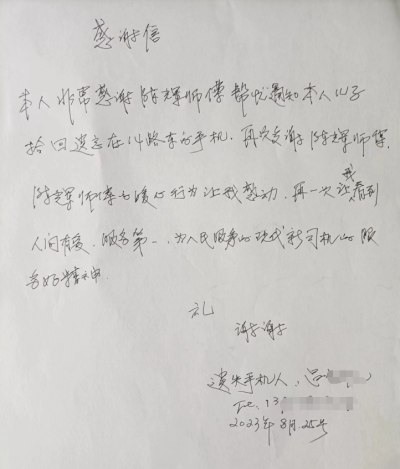 感谢信
本人非常感谢陈辉师傅帮忙通知本人儿子
拾回遗忘在14路车的手机。再次感谢陈辉师傅。
陈辉师傅的暖心行为让我感动，再一次让我看到
人间有爱，服务第一，为人民服务的现代新司机的服
务好精神。
礼
谢谢
遗失手机人：吕
Te: 13
2023年8月25号